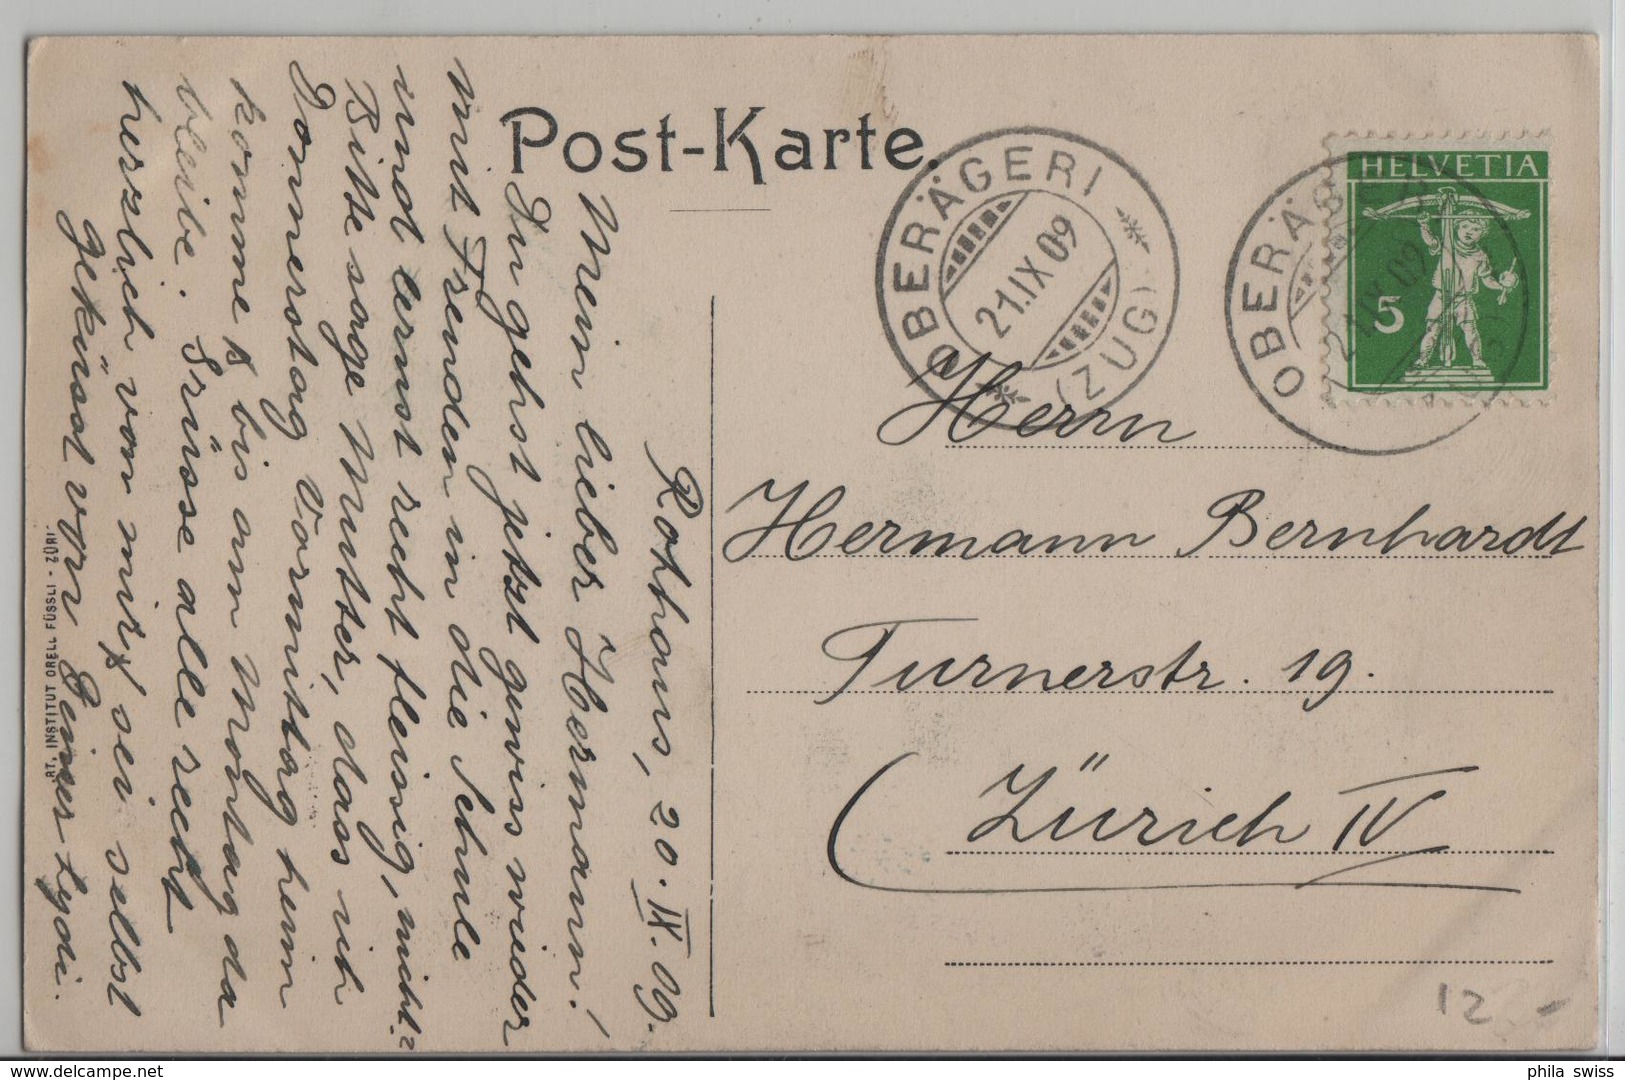 Post-Karte.
OBERÄGERI
21.IX 09
(ZUG)
OBERÄGERI
21.IX 09
(ZUG)
HELVETIA
5
Herrn
Hermann Bernhardt
Turnerstr. 19.
Zürich IV
Rothaus, 20. IX. 09.
Mein lieber Hermann!
Du gehst jetzt gewiss wieder
mit Freuden in die Schule
und lernst recht fleissig, nicht?
Bitte sage Mutter, dass ich
Donnerstag Vormittag heim
komme & bis am Montag da
bleibe. Grüsse alle recht
herzlich von mir & sei selbst
geküsst von Deiner Lydi.
ART. INSTITUT ORELL FÜSSLI - ZÜRI
12.-
www.delcampe.net
phila swiss